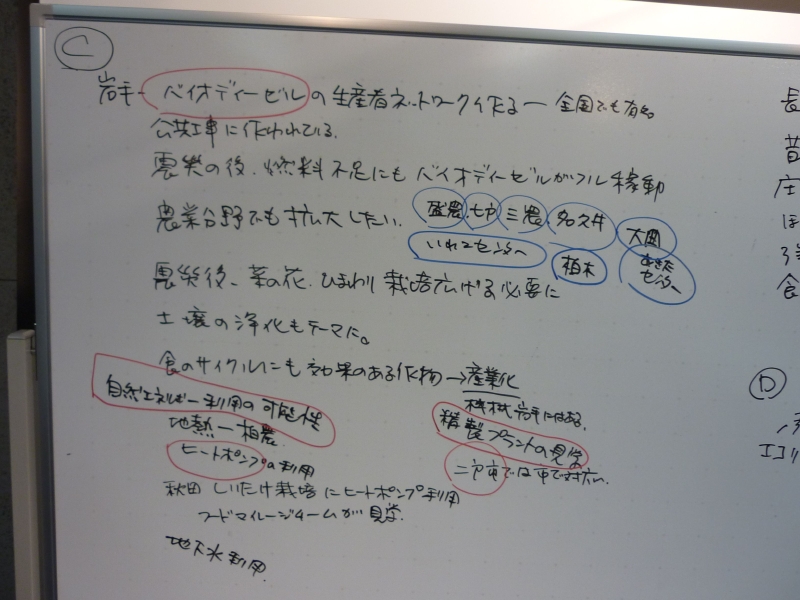 C
岩手－バイオディーゼルの生産者ネットワーク作る－全国でも有名
公共工事に使われている.
震災の後、燃料不足にもバイオディーゼルがフル稼動
農業分野でも拡大したい. 盛農 七戸 三農 名久井 大曲
いわてセンターへ 柏木 あきたセンターへ
震災後、菜の花、ひまわり栽培広げる必要に
土壌の浄化もテーマに。
食のサイクルにも効果のある作物→産業化
機械岩手にはある.
自然エネルギー利用の可能性
精製プラントの見学
地熱－相農
ヒートポンプの利用
二戸市では市で対応.
秋田 しいたけ栽培にヒートポンプ利用
フードマイレージチームが見学.
地下水利用
長
昔
庄
ほ
食
D
エコリ